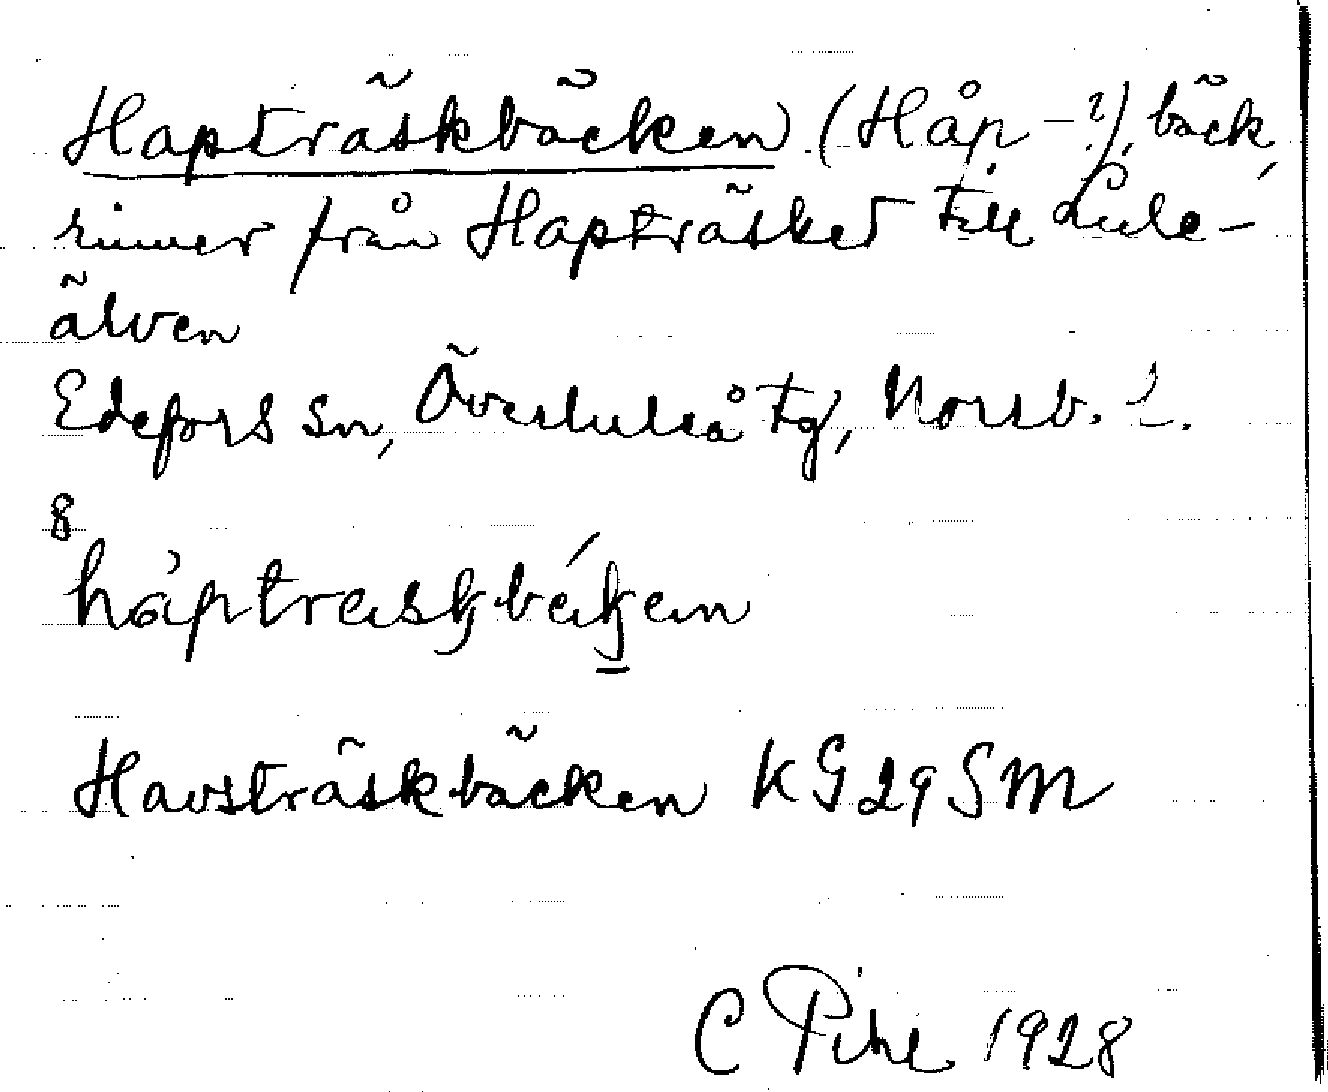 Hapträskbäcken (Håp-?), bäck,
rinner från Hapträsket till Lule-
älven
Edefors sn, Överluleå tg, Norrb. l.
8
Havsträskbäcken KG29SM
C Pihl 1928